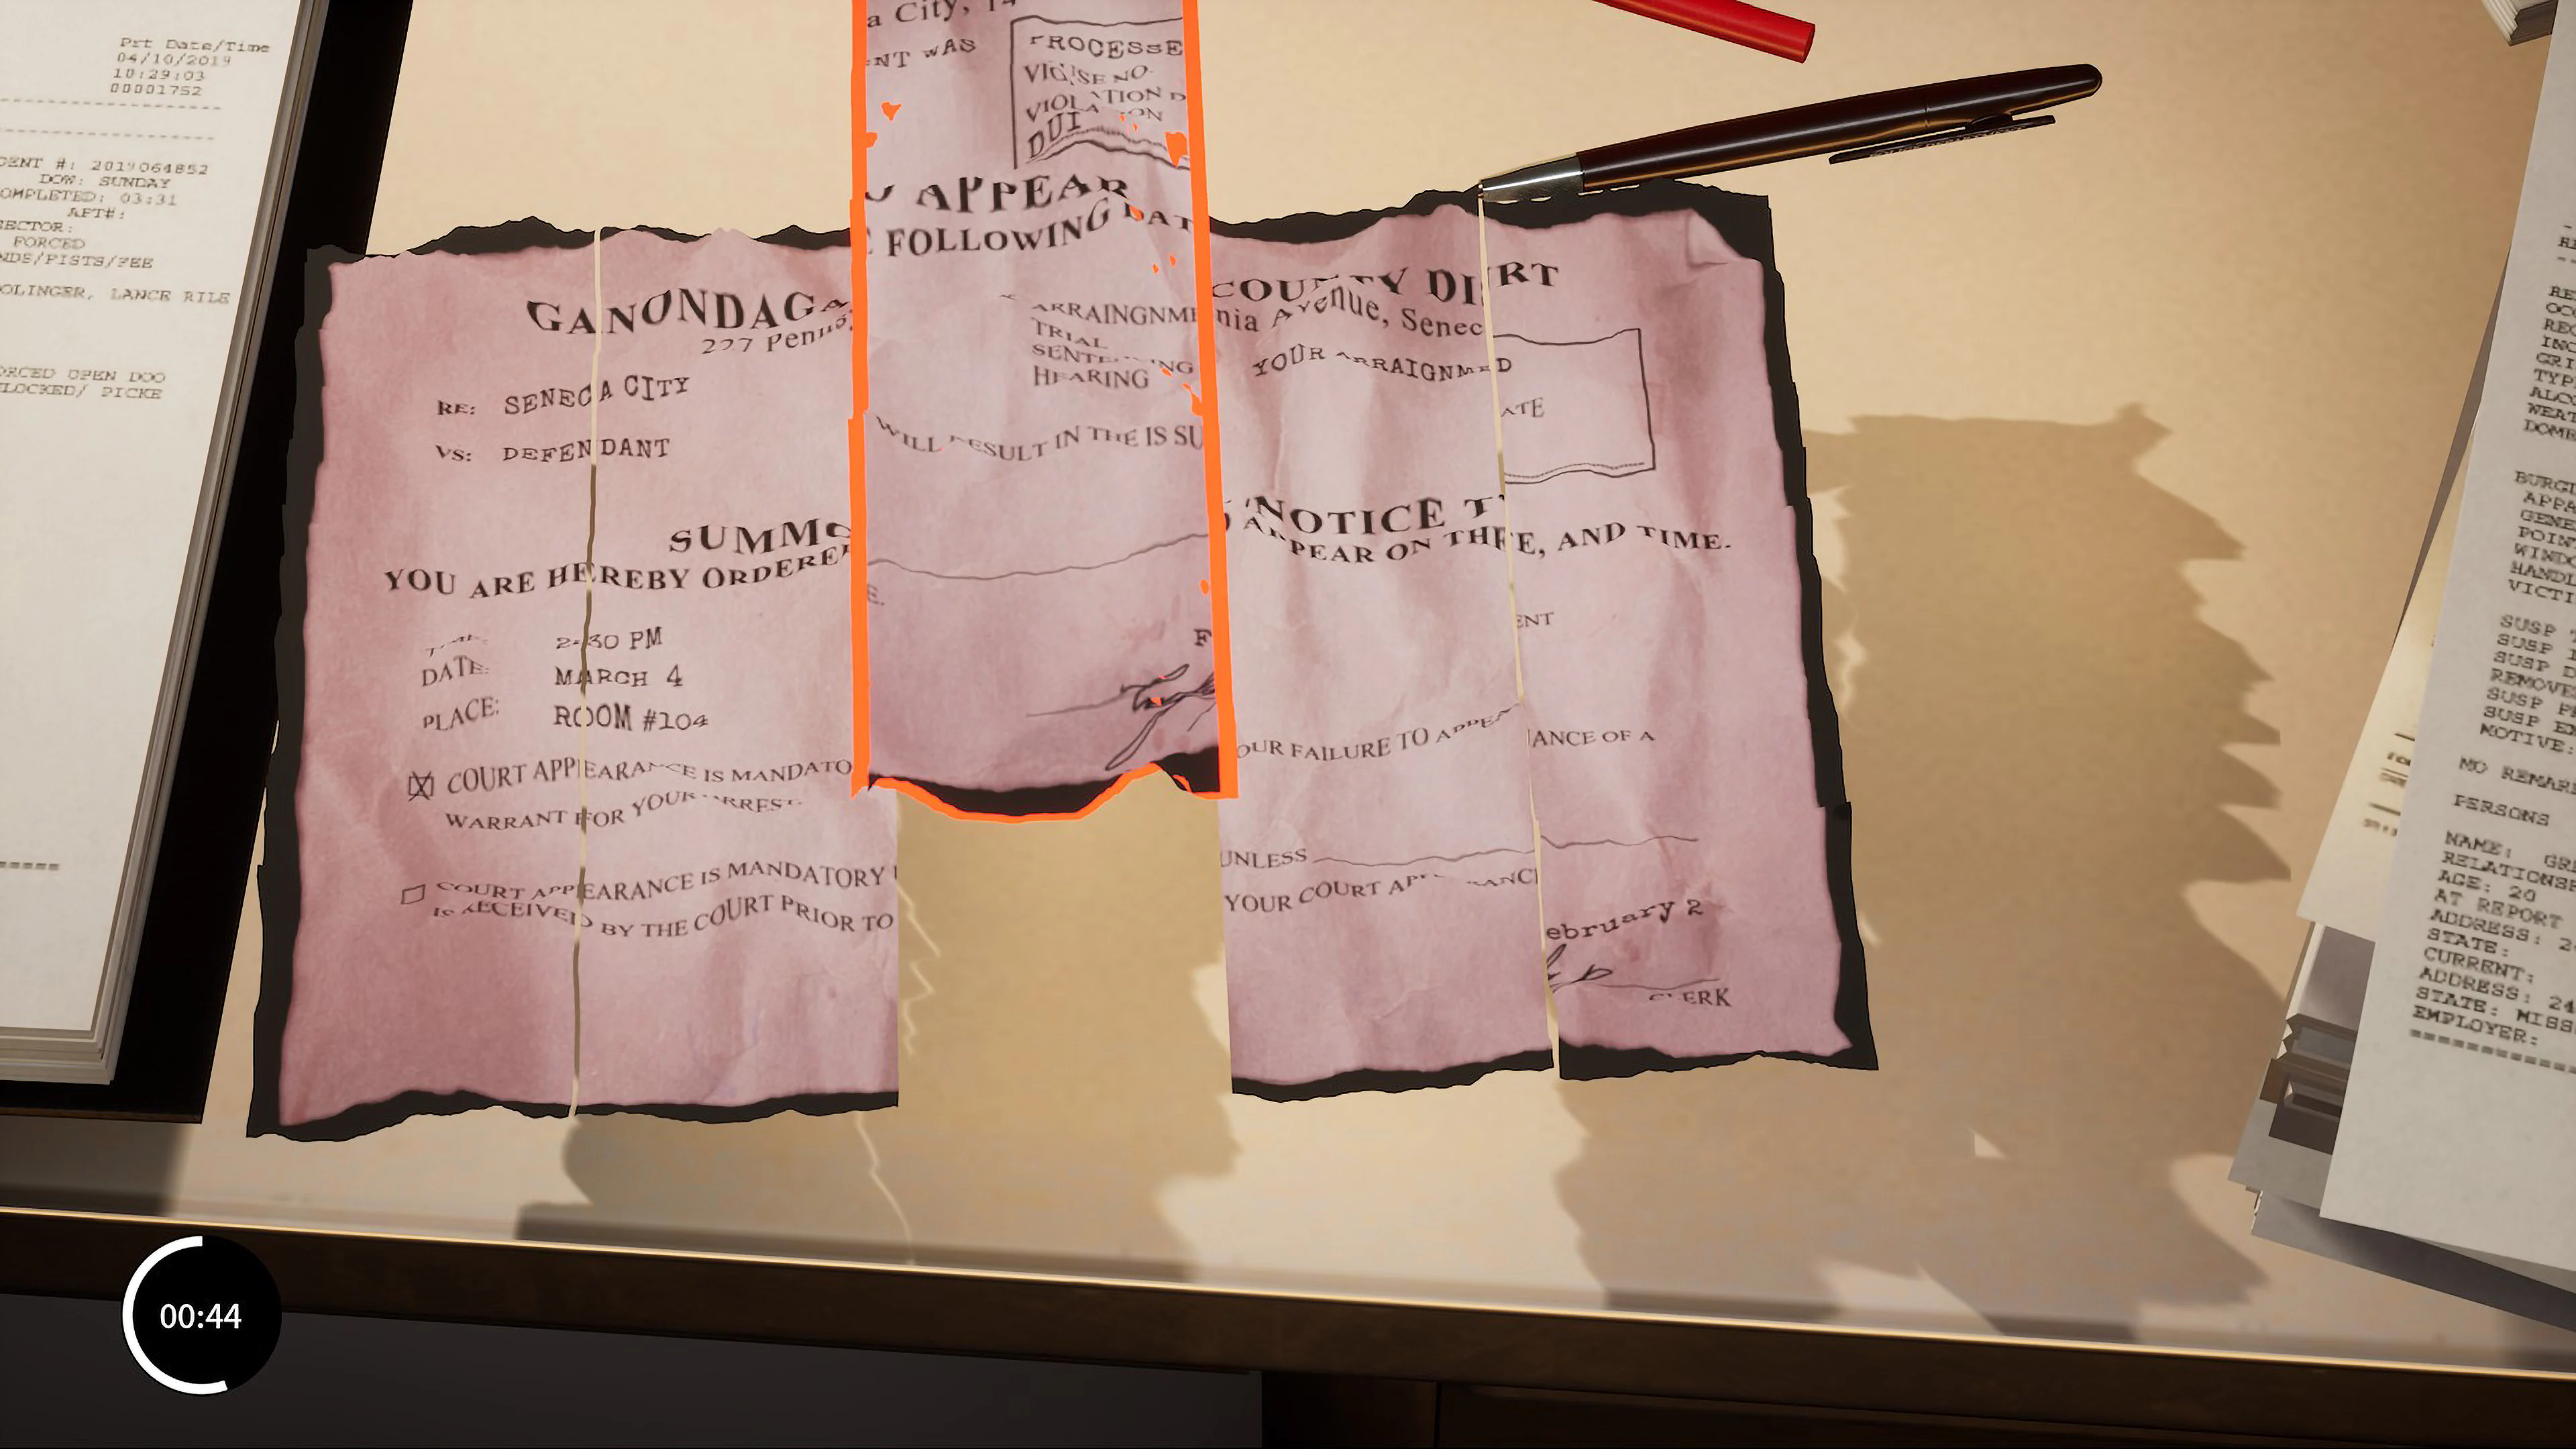 Prt Date/Time
04/10/2019
10:29:03
00001752
DENT #: 2019064852
DOW: SUNDAY
OMPLETED: 03:31
APT#:
SECTOR:
FORCED
NDS/FISTS/FEE
OLINGER, LANCE RILE
ORCED OPEN DOO
LOCKED/ PICKE
a City, 14
ENT WAS
PROCESSE
NO.
VIOLATION D
VIOLATION
DUI
O APPEAR
E FOLLOWING DAT
ARRAINGNME
TRIAL
SENTENCING
HEARING
WILL RESULT IN THE IS SU
E.
F
GANONDAGA
227 Pennsy
RE: SENECA CITY
VS: DEFENDANT
SUMMO
YOU ARE HEREBY ORDERE
TIME: 2:30 PM
DATE: MARCH 4
PLACE: ROOM #104
COURT APPEARANCE IS MANDATO
WARRANT FOR YOUR ARREST.
COURT APPEARANCE IS MANDATORY U
IS RECEIVED BY THE COURT PRIOR TO
COUNTY DI
nia Avenue, Senec
YOUR ARRAIGNM
NOTICE T
D APPEAR ON TH
OUR FAILURE TO APPEA
UNLESS
YOUR COURT APPEARANC
RT
D
ATE
E, AND TIME.
ENT
ANCE OF A
ebruary 2
CLERK
ALCO
WEAT
DOME
BURGL
APPA
GENE
POIN
WINDO
HANDL
VICTI
SUSP T
SUSP I
SUSP D
REMOVE
SUSP
SUSP
MOTIVE:
NO REMAR
PERSONS
NAME: GR
RELATIONSH
AGE: 20
AT REPORT
ADDRESS: 2
STATE:
CURRENT:
ADDRESS: 24
STATE: MISS
EMPLOYER:
00:44